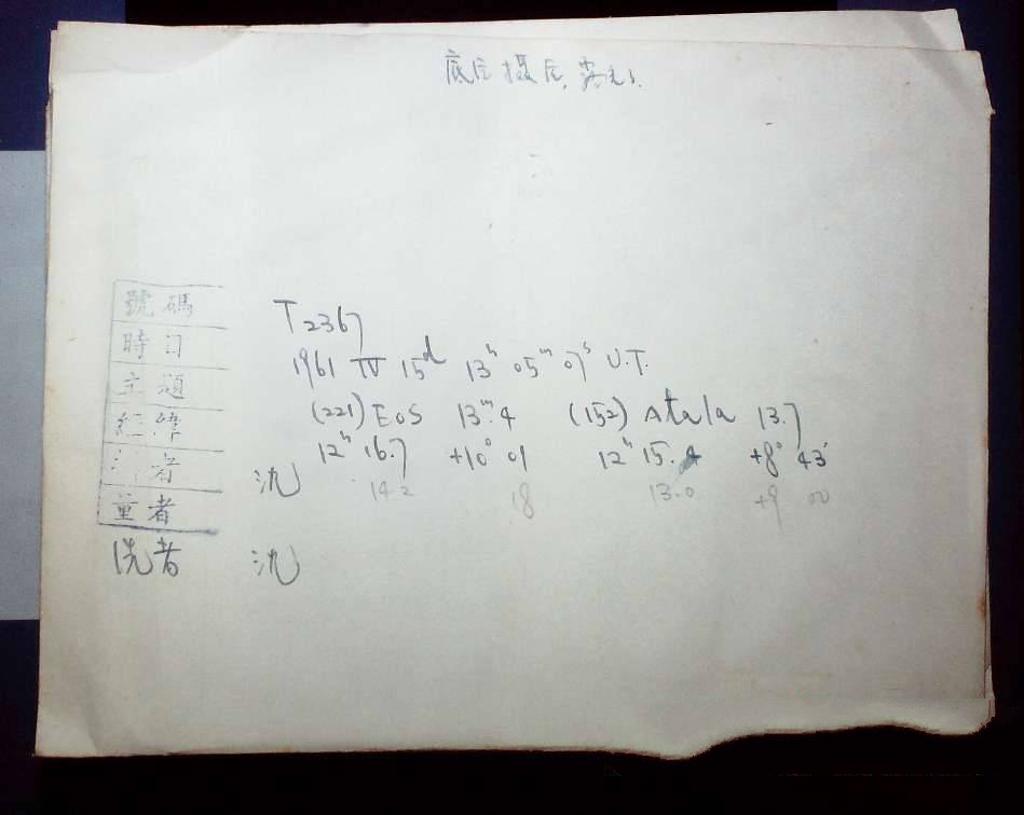 號碼 T2367
時日 1961 IV 15ᵈ 13ʰ 05ᵐ 07ˢ U.T.
主題 (221) EOS 13ᵐ.4 (152) Atala 13.7
經緯 12ʰ 16.7 +10° 01 12ʰ 15.4 +8° 43′
者 沈
14.2 18 13.0 +9 00
量者
洗者 沈